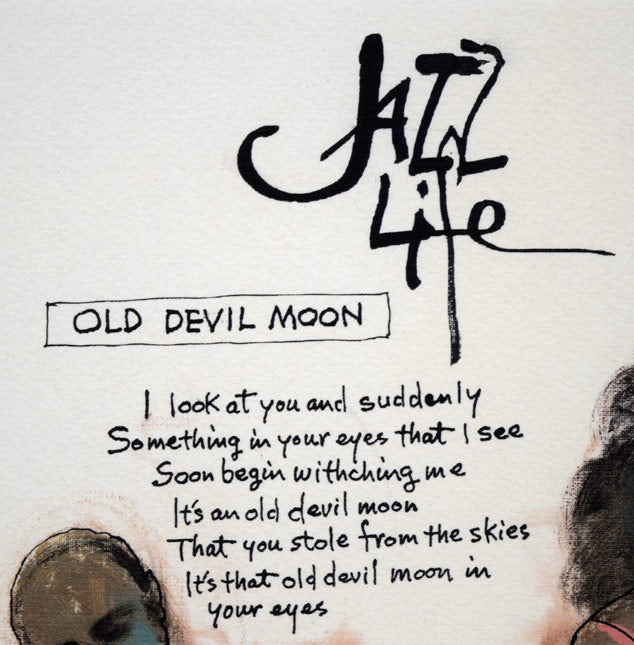 Jazz
Life
OLD DEVIL MOON
I look at you and suddenly
Something in your eyes that I see
Soon begin withching me
It's an old devil moon
That you stole from the skies
It's that old devil moon in
your eyes